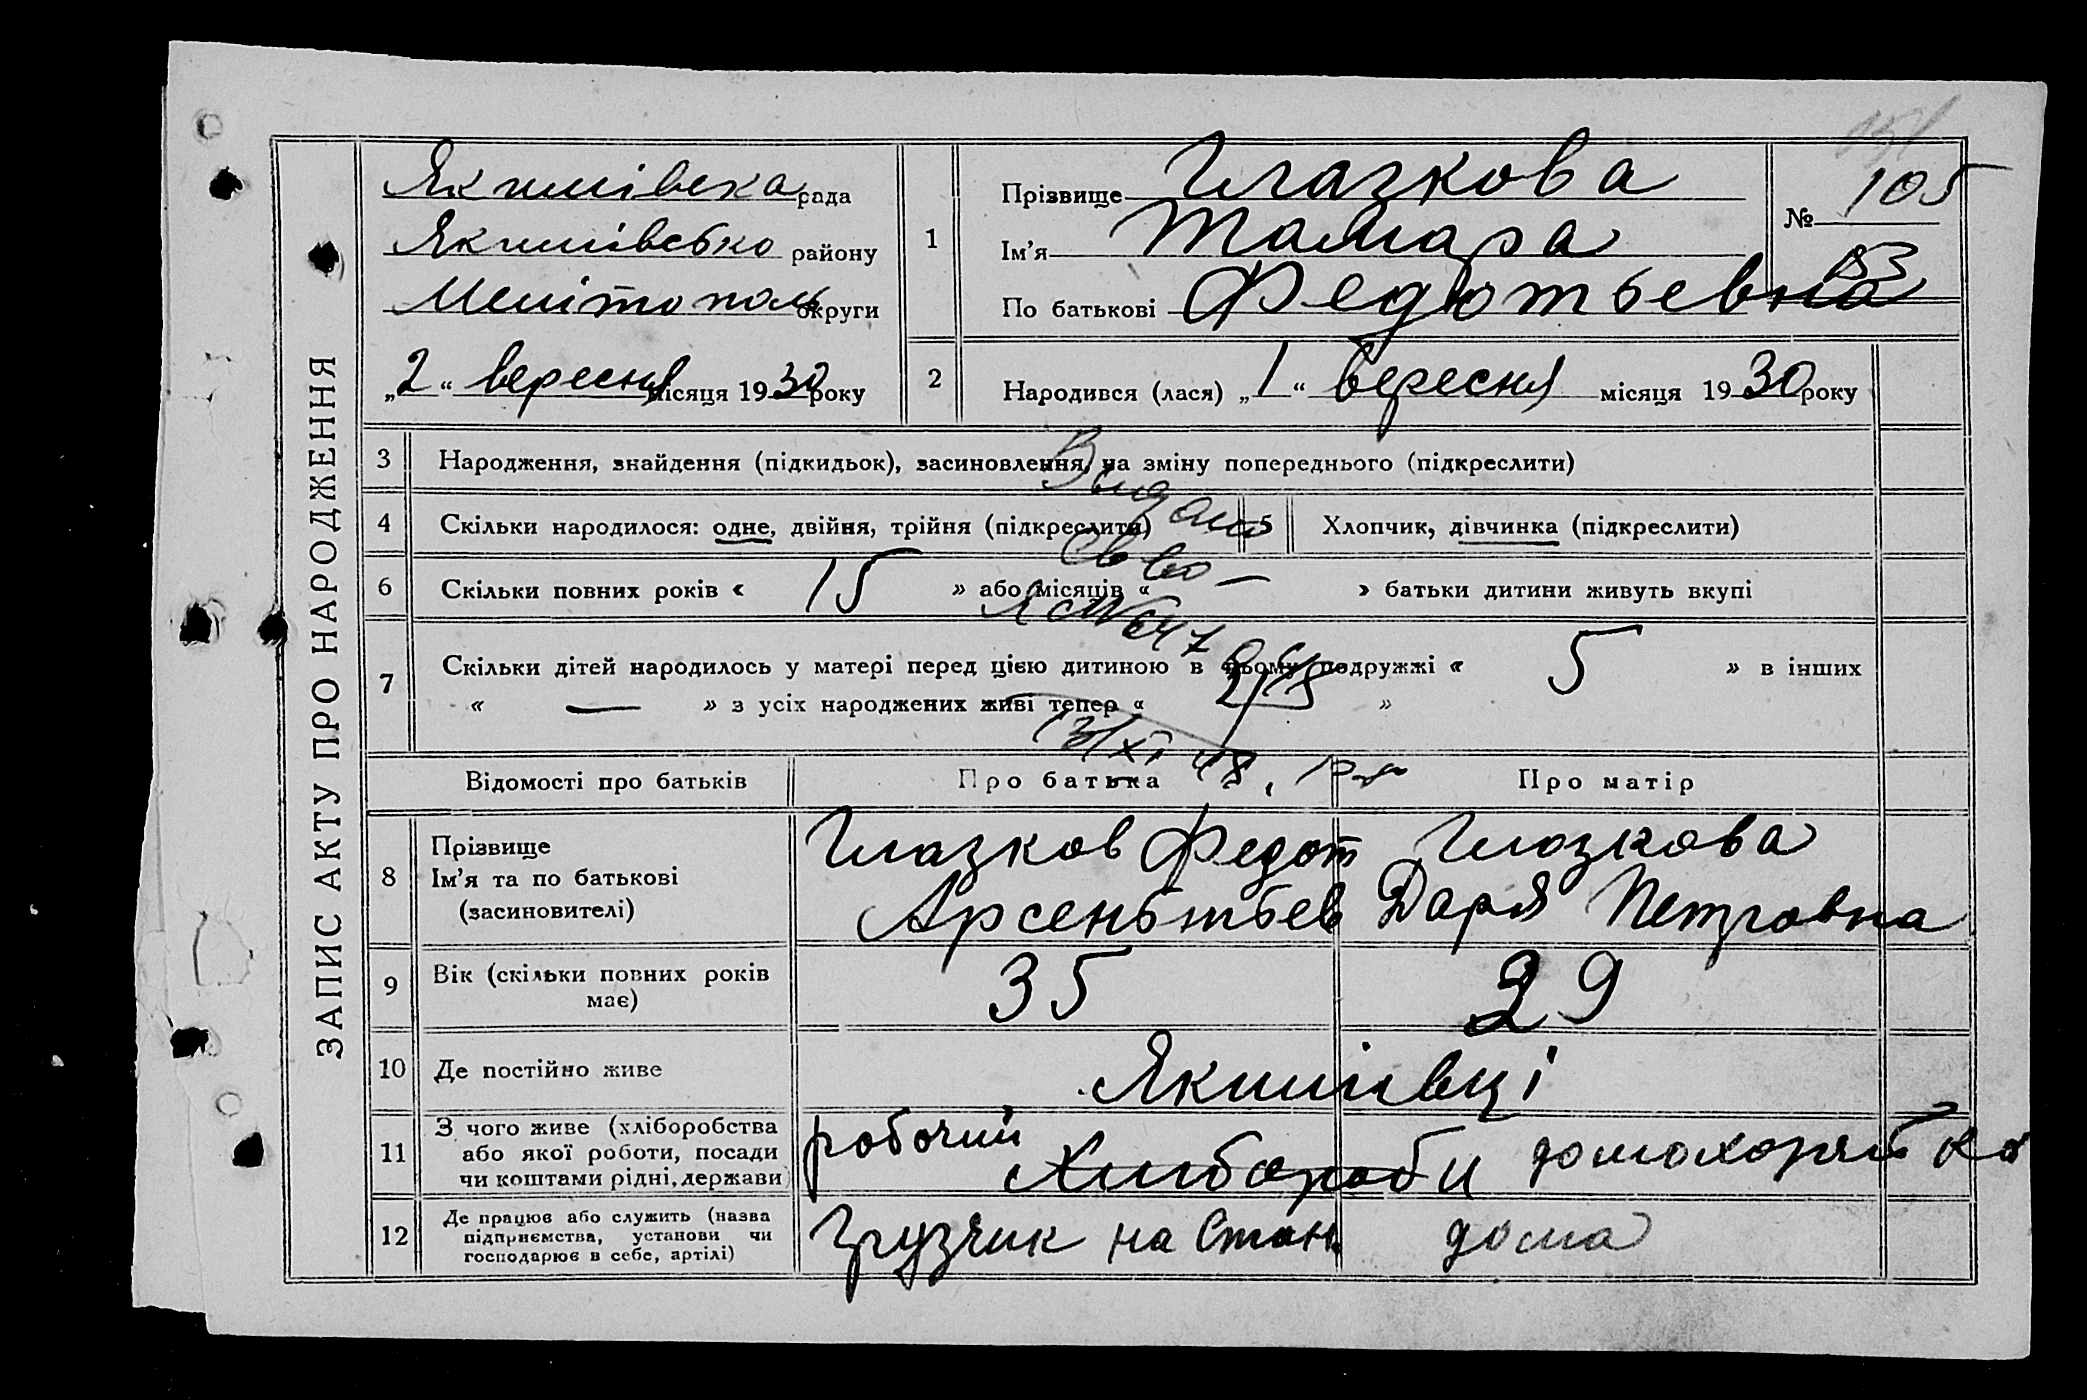 ЗАПИС АКТУ ПРО НАРОДЖЕННЯ
Якимівска рада
Якимівсько району
Мелітополь округи
„2“ вересня місяця 1930 року
1
Прізвище Глазкова
Ім’я Тамара
По батькові Федотьевна
№ 105
153
2
Народився (лася) „1“ вересня місяця 1930 року
3 Народження, знайдення (підкидьок), засиновлення, на зміну попереднього (підкреслити)
4 Скільки народилося: одне, двійня, трійня (підкреслити) 5 Хлопчик, дівчинка (підкреслити)
6 Скільки повних років « 15 » або місяців « — » батьки дитини живуть вкупі
7 Скільки дітей народилось у матері перед цією дитиною в цьому подружжі « 5 » в інших
« — » з усіх народжених живі тепер « »
Видано
Св во
Відомості про батьків Про батька Про матір
8 Прізвище
Ім’я та по батькові
(засиновителі)
Глазков Федот
Арсеньтьев
Глазкова
Даря Петровна
9 Вік (скільки повних років
має)
35 29
10 Де постійно живе Якимівці
11 З чого живе (хліборобства
або якої роботи, посади
чи коштами рідні, держави)
робочий Хлибороби домохозяйка
12 Де працює або служить (назва
підприємства, установи чи
господарює в себе, артілі)
Грузчик на Стан. дома